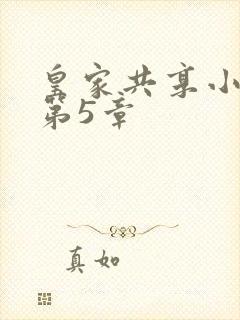 皇家共享小
第5章
真如